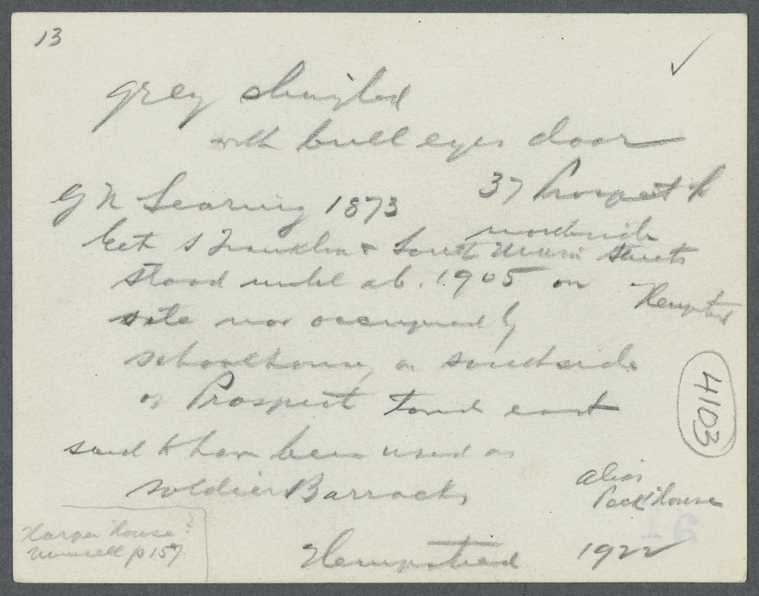 13
grey shingled
with bull eyes door
G N Searing 1873
37 Prospect
northside
bet S Franklin & South Main Streets
stood until ab. 1905 on
Hempstead
site now occupied by
schoolhouse, on southside
of Prospect toward east
said to have been used as
soldier Barracks
4103
alias
"Pock" House
Harper House?
Munsell p 157
Hempstead 1922